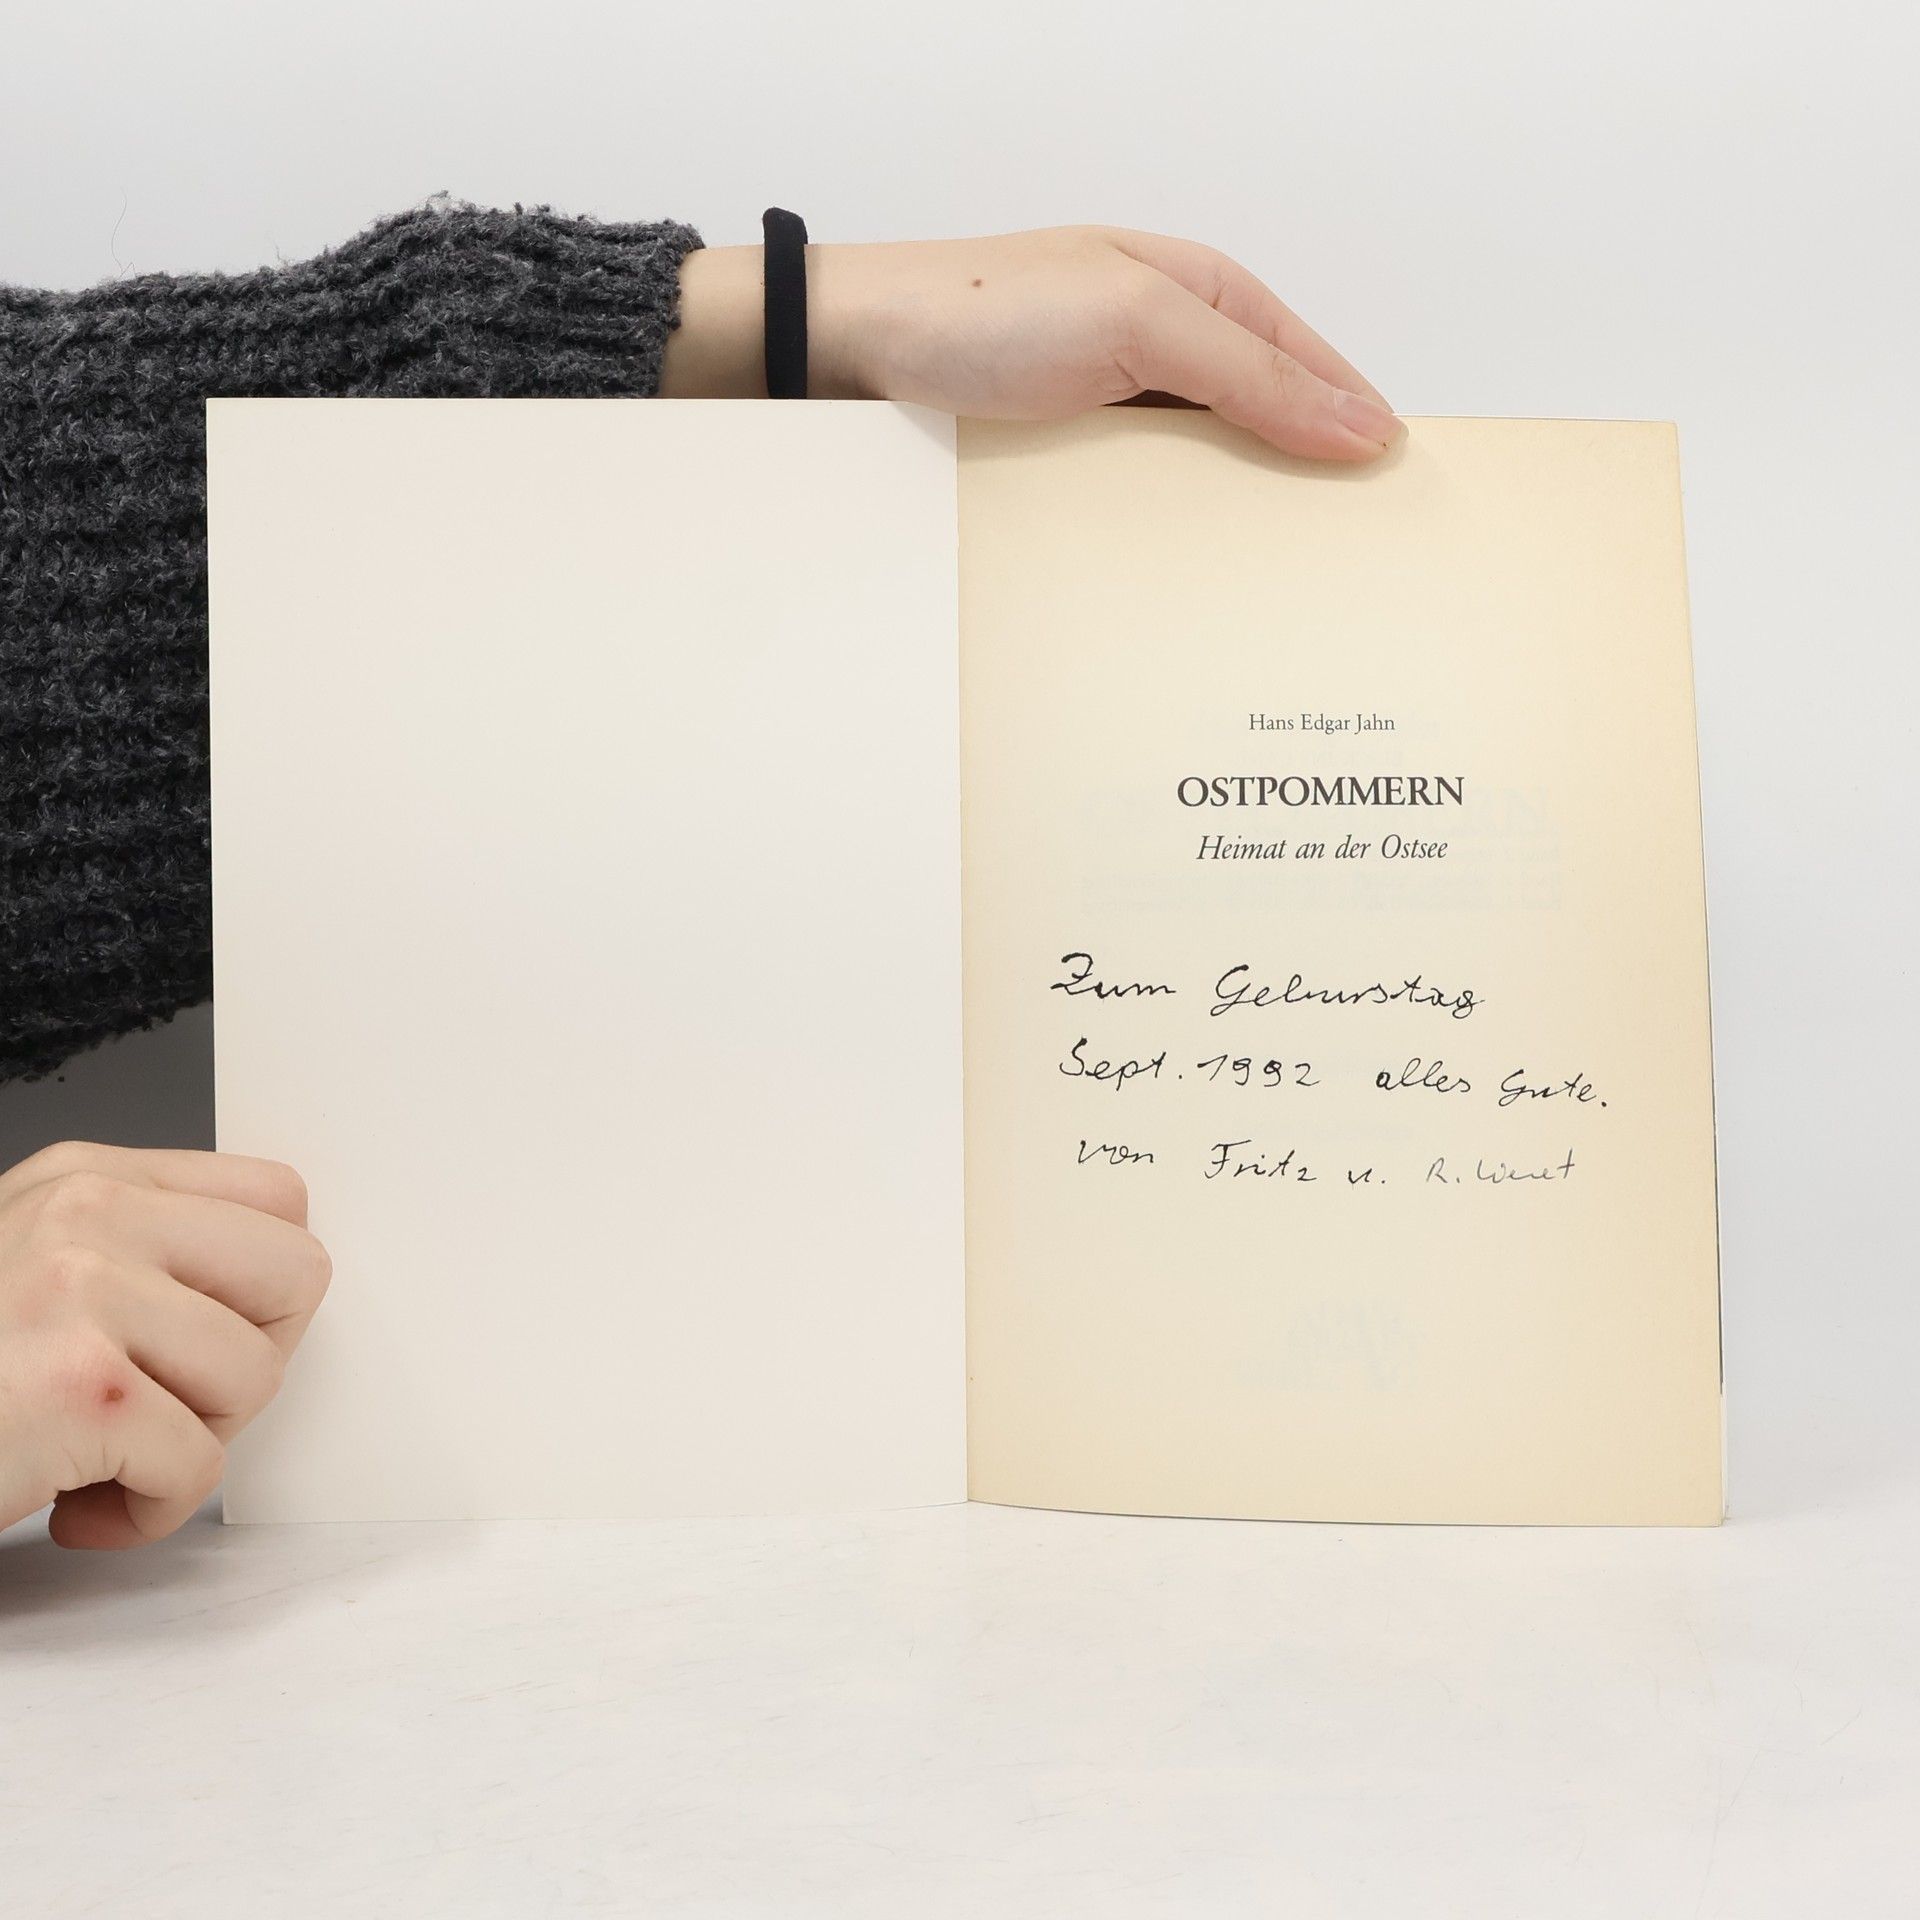 Hans Edgar Jahn
OSTPOMMERN
Heimat an der Ostsee
Zum Geburstag
Sept. 1992 alles Gute.
von Fritz u. R.